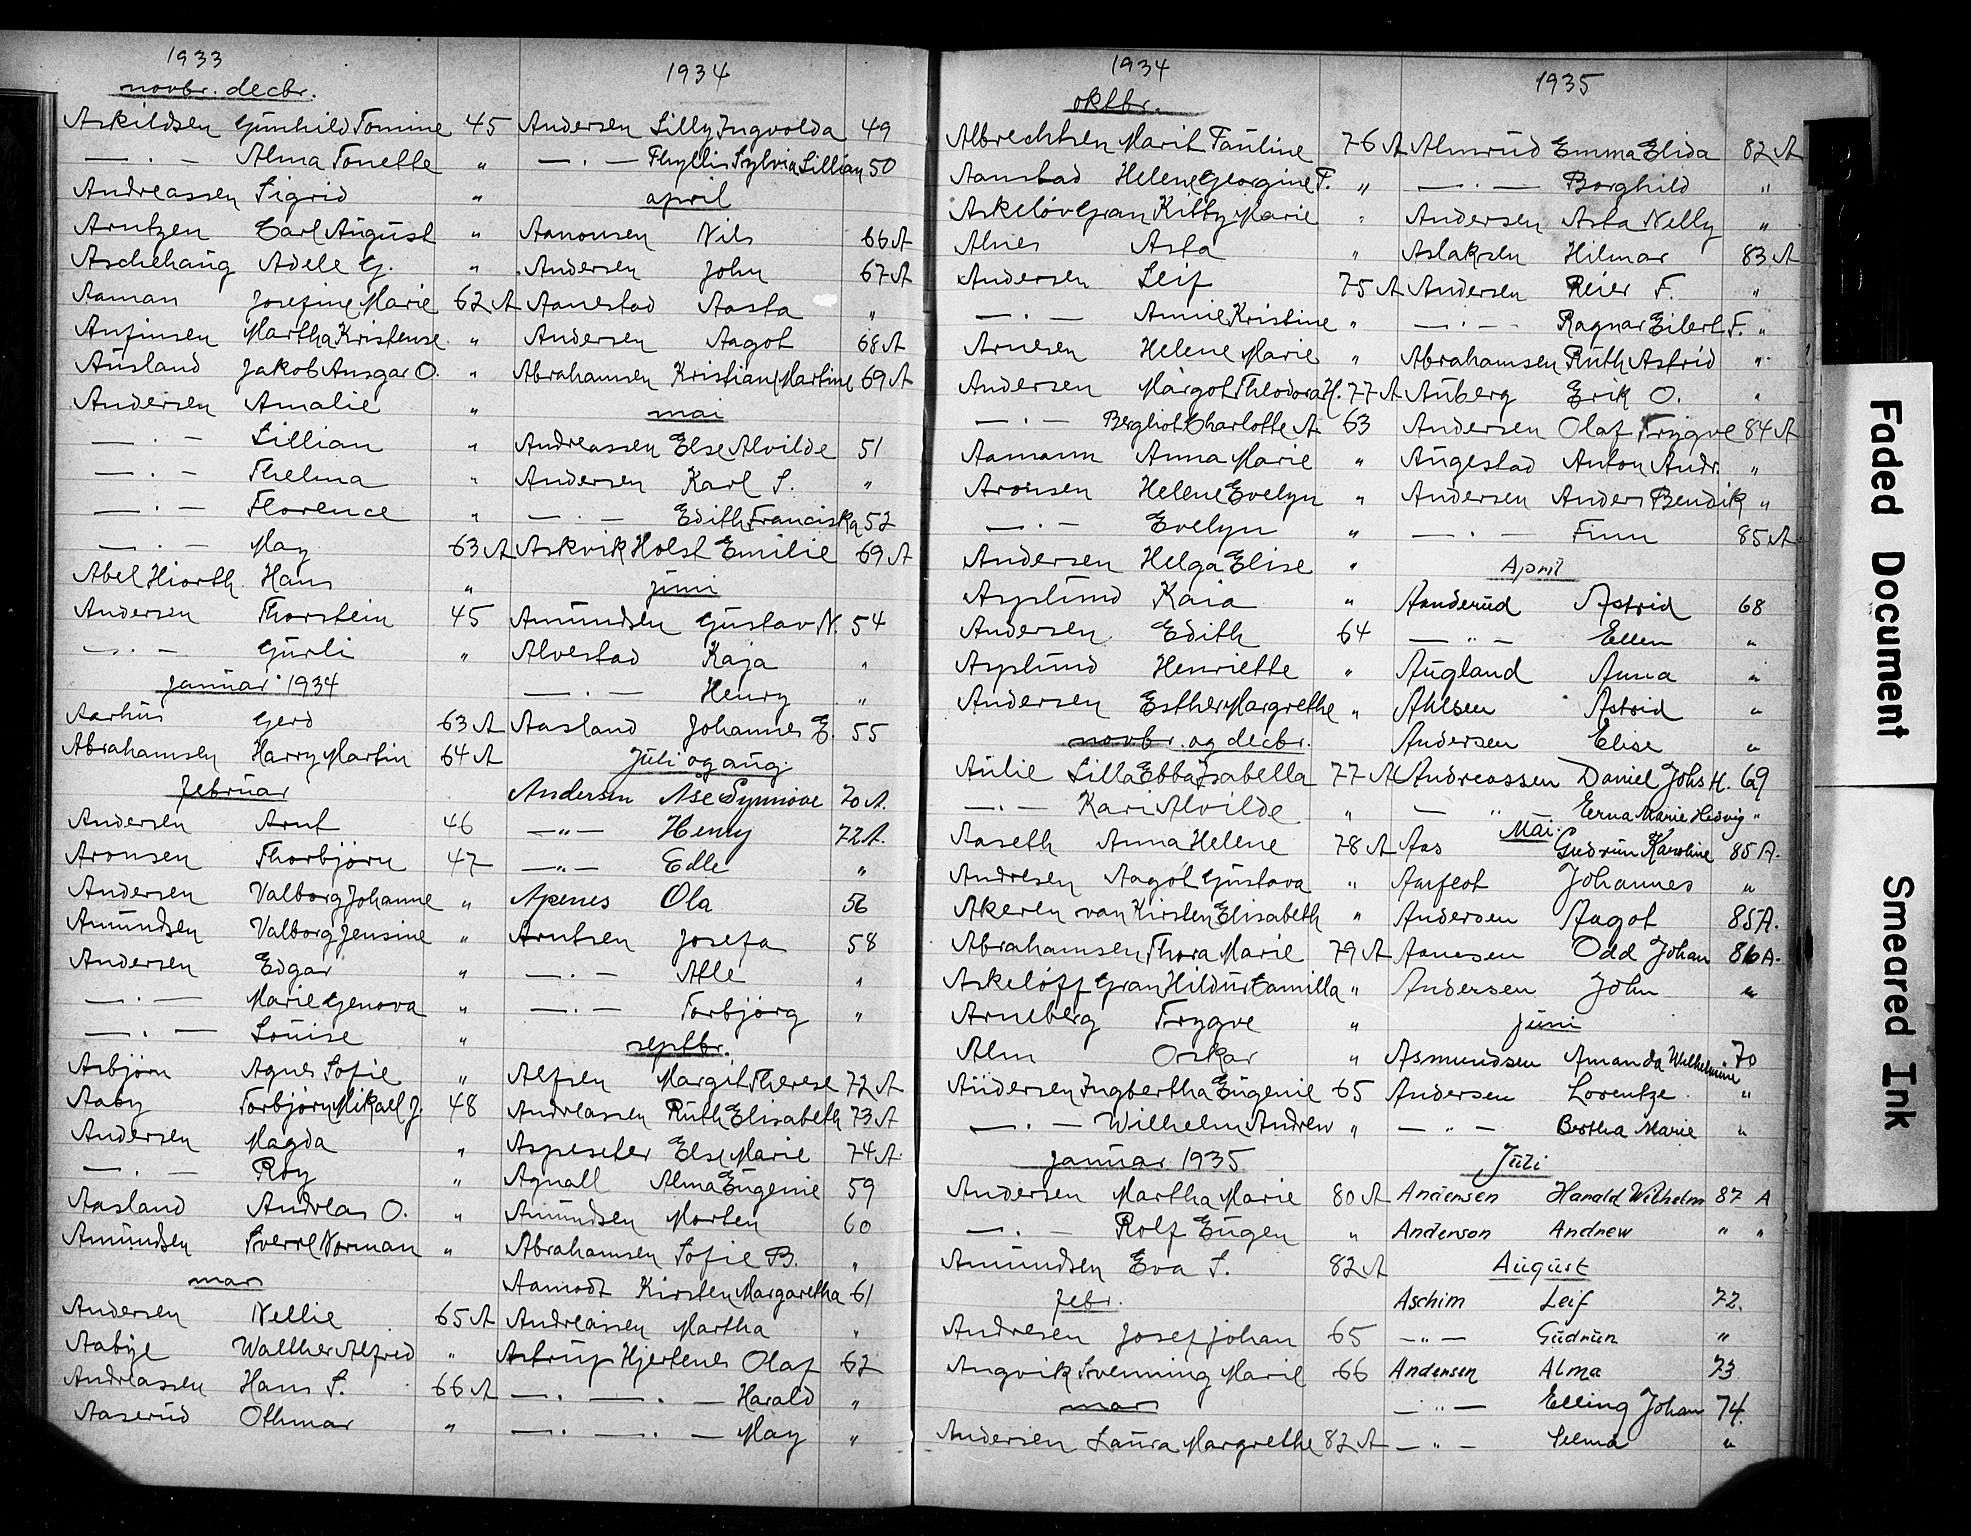 1933
novbr. decbr.
Askildsen Gunhild Tomine 45
— . — Alma Tonette "
Andreassen Sigrid "
Arntzen Carl August "
Aschehaug Adele G. "
Aaman Josefine Marie 62 A
Anfinsen Martha Kristense "
Ausland Jakob Ansgar O. "
Andersen Amalie "
— . — Lillian "
— . — Thelma "
— . — Florence "
— . — May 63 A
Abel Hiorth Hans "
Andersen Thorstein 45
— . — Gurli "
januar 1934
Aarhus Gerd 63 A
Abrahamsen Harry Martin 64 A
februar
Andersen Arnt 46
Aronsen Thorbjørn 47
Andersen Valborg Johanne "
Amundsen Valborg Jensine "
Andersen Edgar "
— . — Marie Genova "
— . — Louise "
Asbjørn Agnes Sofie "
Aaby Torbjørn Mikael J. 48
Andersen Magda "
— . — Roy "
Aasland Andreas O. "
Amundsen Sverre Norman "
mars
Andersen Nellie 65 A
Aabye Walther Alfred "
Andreassen Hans S. 66 A
Aaserud Othmar "
1934
Andersen Lilly Ingvolda 49
— . — Phyllis Sylvia Lillian 50
april
Aamonsen Nils 66 A
Andersen John 67 A
Aanestad Aasta "
Andersen Aagot 68 A
Abrahamsen Kristiane Martine 69 A
mai
Andreassen Else Alvilde 51
Andersen Karl S. "
— . — Edith Franciska 52
Askvik Holst Emilie 69 A
juni
Amundsen Gustav N. 54
Alvestad Kaja "
— . — Henry "
Aasland Johannes E. 55
Juli og aug.
Andersen Åse Synnøve 70 A.
— " — Henry 72 A.
— " — Edle "
Apenes Ola 56
Arntsen Josefa 58
— . — Atle "
— . — Torbjørg "
septbr.
Alfsen Margit Therese 72 A
Andreassen Ruth Elisabeth 73 A
Aspeseter Else Marie 74 A.
Agnall Alma Eugenie 59
Amundsen Morten 60
Abrahamsen Sofie B. "
Aamodt Kirsten Margaretha 61
Andreassen Martha "
Astrup Hjertenes Olaf 62
— . — . — Harald "
— . — . — May "
1934
oktbr.
Albrechtsen Marit Pauline 76 A
Aanstad Helene Georgine F. "
Askeløv Gran Kitty Marie "
Alnes Asta "
Andersen Leif 75 A
— . — Annie Kristine "
Arnesen Helene Marie "
Andersen Margot Theodora H. 77 A
— . — Bergliot Charlotte A. 63
Aamann Anna Marie "
Aronsen Helene Evelyn "
— . — Evelyn "
Andersen Helga Elise "
Asplund Kaia "
Andersen Edith 64
Asplund Henriette "
Andersen Esther Margrethe "
novbr. og decbr.
Aulie Lilla Ebba Isabella 77 A
— . — Kari Alvilde "
Aaseth Anna Helene 78 A
Andresen Aagot Gustava "
Akeren van Kirsten Elisabeth "
Abrahamsen Thora Marie 79 A
Askeløff Gran Hildur Camilla "
Arneberg Trygve "
Alm Oskar "
Andersen Ingbertha Eugenie 65
— . — Wilhelm Andrew "
januar 1935
Andersen Martha Marie 80 A
— . — Rolf Eugen "
Amundsen Eva S. 82 A
febr.
Andresen Josef Johan 65
Angvik Svenning Marie 66
mars
Andersen Laura Margrethe 82 A
1935
Almrud Emma Elida 82 A
— . — Borghild "
Andersen Asta Nelly "
Aslaksen Hilmar 83 A
Andersen Reier F. "
— . — Ragnar Eilert F. "
Abrahamsen Ruth Astrid "
Auberg Erik O. "
Andersen Olaf Trygve 84 A
Augestad Anton Andr. "
Andersen Anders Bendik "
— . — Finn 85 A
April
Aanderud Astrid 68
— " — Ellen "
Augland Anna "
Ahlsen Astrid "
Andersen Elise "
Andreassen Daniel Johs H. 69
— " Erna Marie Hedvig "
Mai
Aas Gudrun Karoline 85 A.
Aarfeot Johannes "
Andersen Aagot 85 A.
Aanesen Odd Johan 86 A.
Andersen John "
Juni
Asmundsen Amanda Wilhelmine 70
Andersen Lorentze "
— " — Bertha Marie "
Juli
Andersen Harald Wilhelm 87 A
Anderson Andrew " "
August
Aschim Leif 72.
— " — Gudrun "
Andersen Alma 73
— " — Elling Johan 74.
— " — Selma "
Faded Document
Smeared Ink